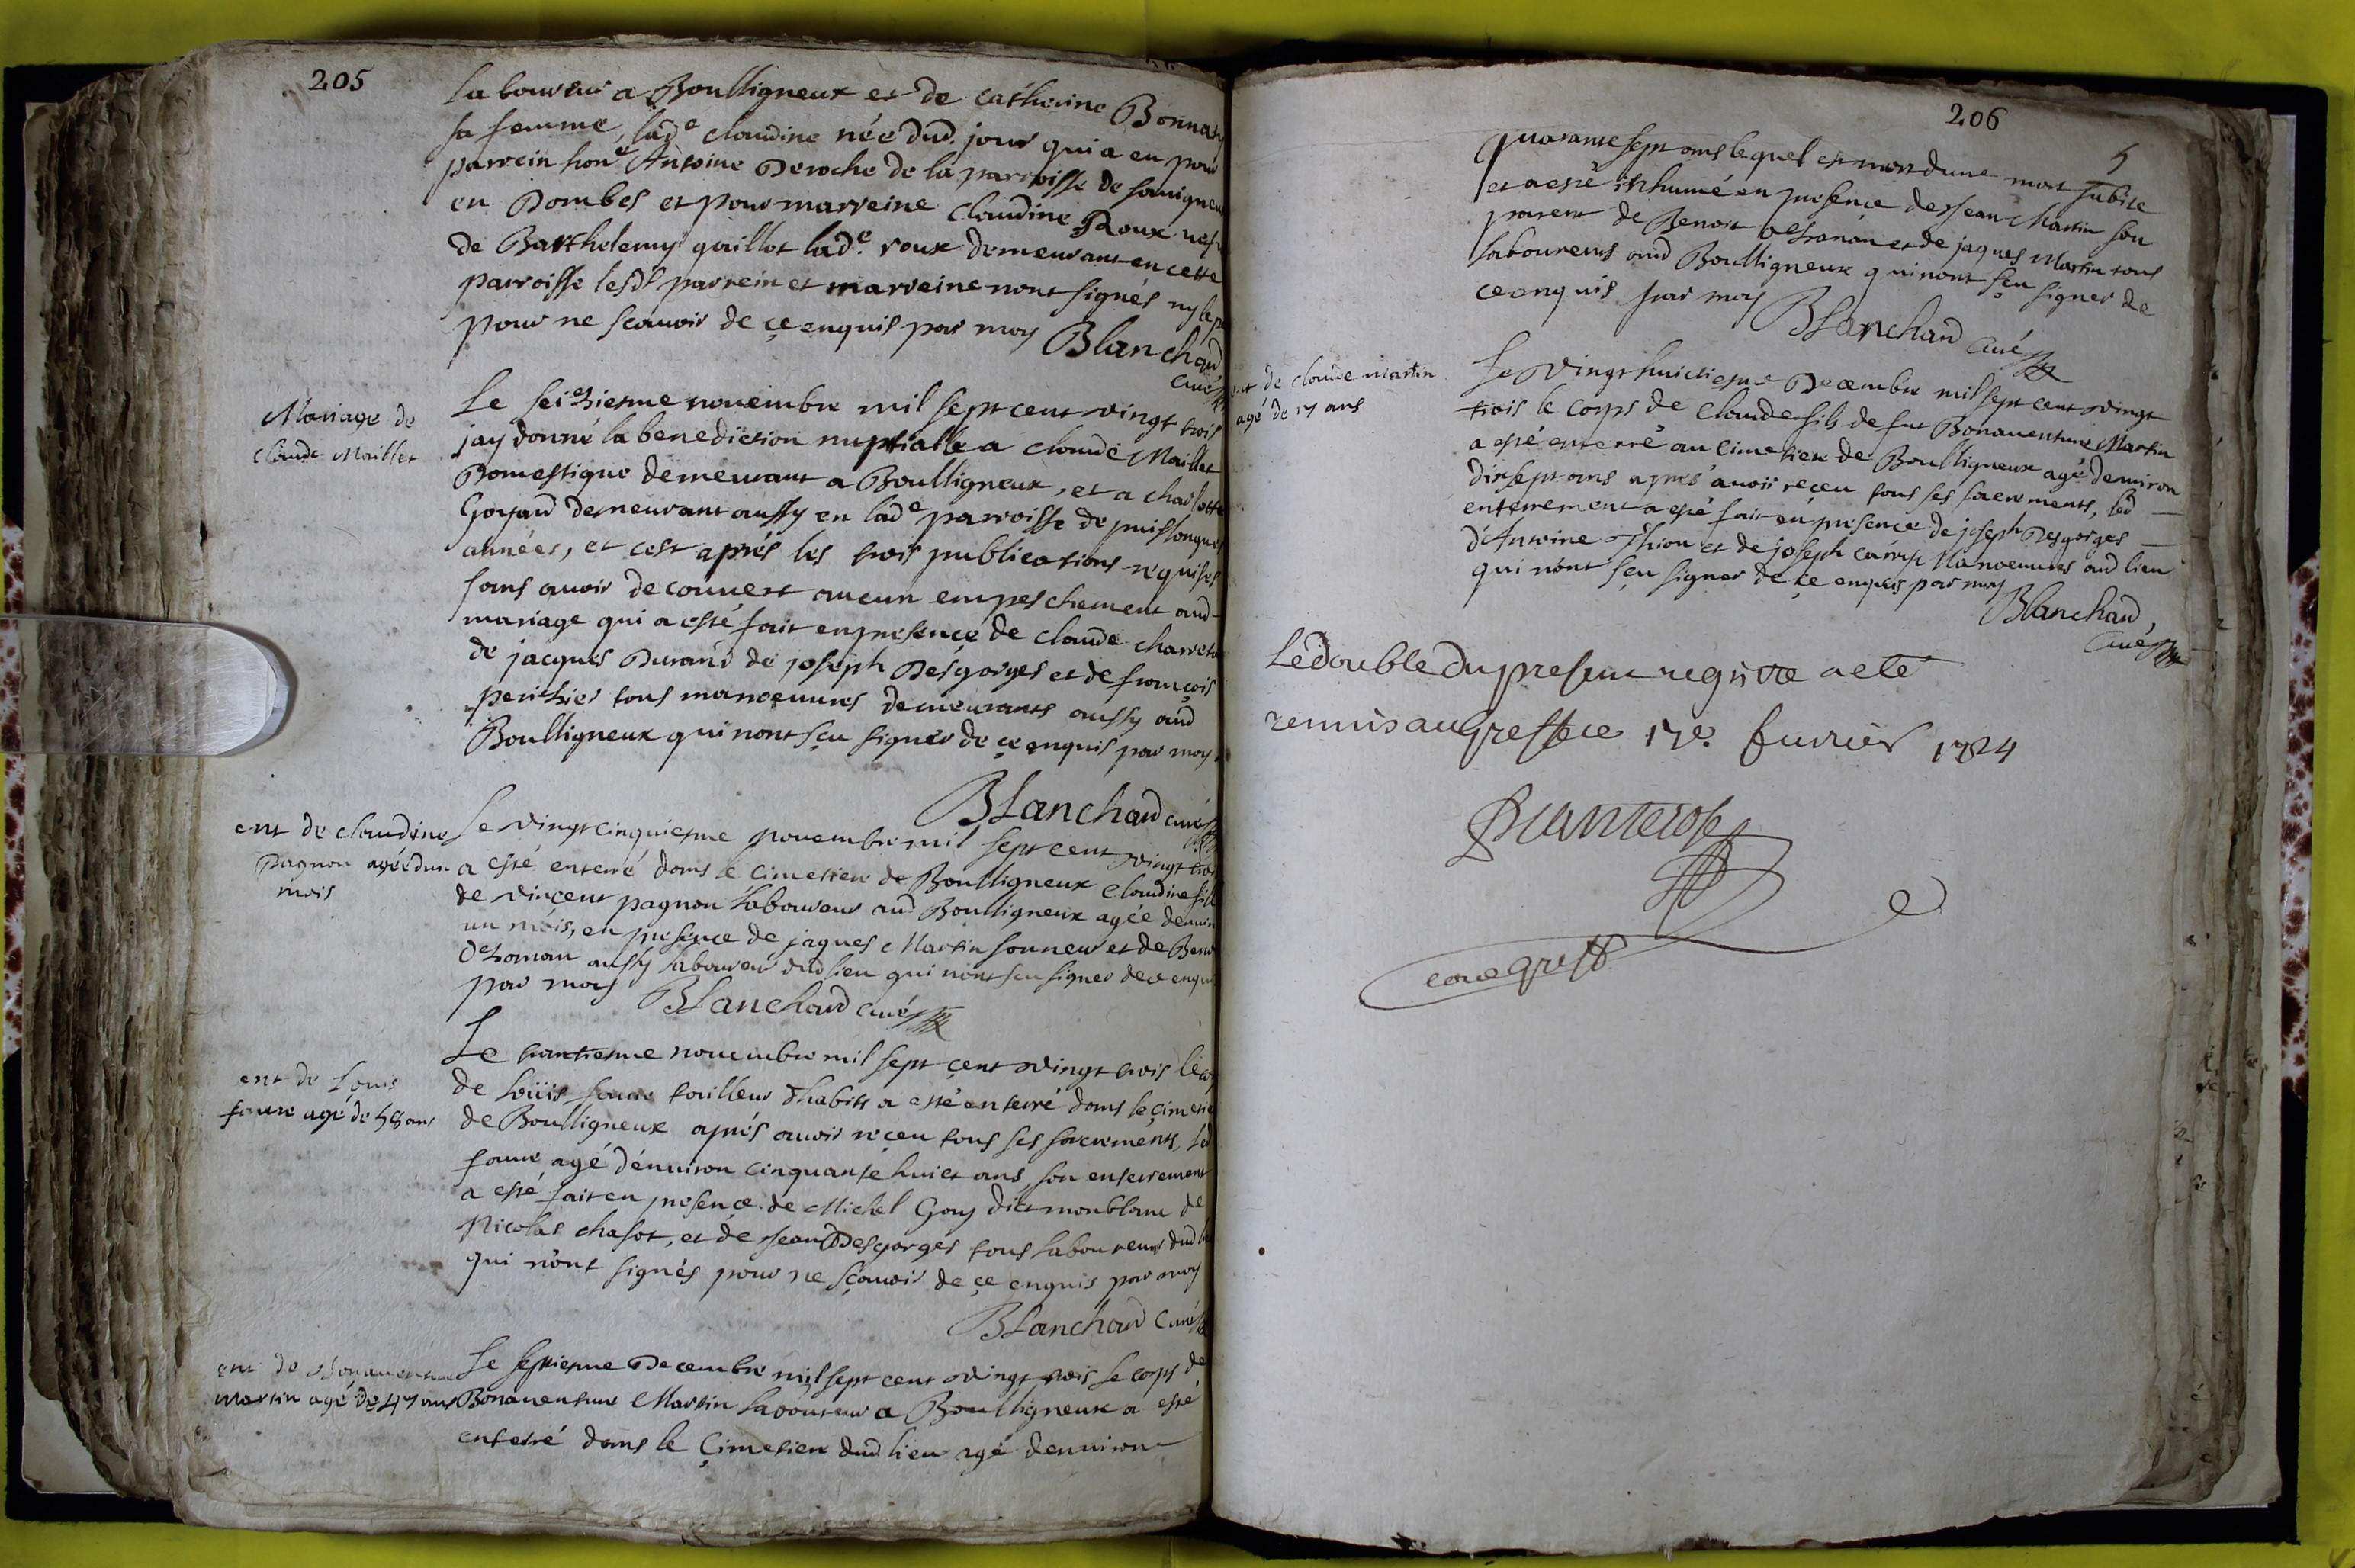 205
laboureur a Boulligneux et de catherine Bonnard
sa femme, lad.e claudine née dud. jour qui a eu pour
parrein hon.e Antoine Deroche de la parroisse de savigneux
en Dombes et pour marreine Claudine Roux
de Barthelemy guillot lad.e roux demeurant en cette
parroisse lesd.s parrein et marreine nont signés ny le
pour ne scavoir de ce enquis par moy Blanchard
curé
Mariage de
claude Maillet
Le seiziesme novembre mil sept cent vingt trois
jay donné la benediction nuptialle a claude Maillet
Domestique demeurant a Boulligneux, et a charlotte
Goyard demeurant aussy en lad.e parroisse depuis longues
années, et cest aprés les trois publications requises
sans avoir decouvert aucun empeschement aud
mariage qui a esté fait en presence de claude charreton
de jacques Durand de joseph Desgorges et de françois
perichier tous manoeuvres demeurants aussy aud
Boulligneux qui nont sçu signer de ce enquis par moy
Blanchard curé
ent de claudine
pagnon agée dun
mois
Le vingt cinquiesme novembre mil sept cent vingt trois
a esté enterré dans le cimetiere de Boulligneux Claudine fille
de vincent pagnon laboureur aud Boulligneux agée denviron
un mois, en presence de jaques Martin sonneur et de Benoit
aussy laboureur dud lieu qui nont sçu signer de ce enquis
par moy Blanchard curé
ent de Louis
faure agé de 58 ans
Le trantiesme novembre mil sept cent vingt trois le corps
de Loüis faure tailleur dhabits a esté enterré dans le cimetiere
de Boulligneux aprés avoir reçeu tous ses sacrements, led
faure agé dénviron cinquante huict ans, son enterrement
a esté fait en presence de Michel Goy dict monblanc de
Nicolas chasot, et de Jean Desgorges tous laboureurs dud lieu
qui nónt signés pour ne sçavoir de ce enquis par moy
Blanchard curé
ent de Bonaventure
Martin agé de 47 ans
Le septiesme Decembre mil sept cent vingt trois le corps de
Bonaventure Martin laboureur a Boulligneux a esté
enterré dans le cimetiere dud lieu agé denviron
206
5
quarante sept ans lequel est mort dune mort subite
et a esté inhumé en presence de Jean Martin son
parent de Benoit et de jaques Martin tous
laboureurs aud Boulligneux qui nont sçu signer de
ce enquis par moy Blanchard curé
ent de claude martin
agé de 17 ans
Le vingt huictiesme Decembre mil sept cent vingt
trois le corps de Claude fils de fut Bonaventure Martin
a esté enterré au cimetiere de Boulligneux agé denviron
dixsept ans aprés avoir reçeu tous ses sacrements, led
enterrement a esté fait en presence de joseph Desgorges
d'Antoine Thion et de joseph manoeuvres aud lieu
qui nónt sçu signer de ce enquis par moy
Blanchard,
curé
Le double du present registre a eté
remis au Greffe ce 17e. fevrier 1724
Branterose